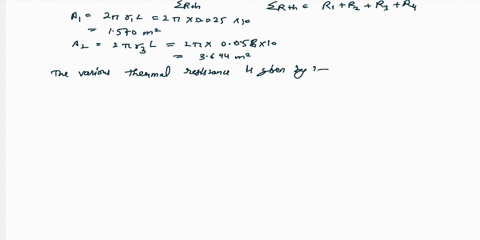 ΣRth ΣRth = R1 + R2 + R3 + R4
A1 = 2π r1 L = 2π × 0.025 × 10
= 1.570 m²
A2 = 2π r3 L = 2π × 0.058 × 10
= 3.644 m²
The various thermal resistance is given by :-